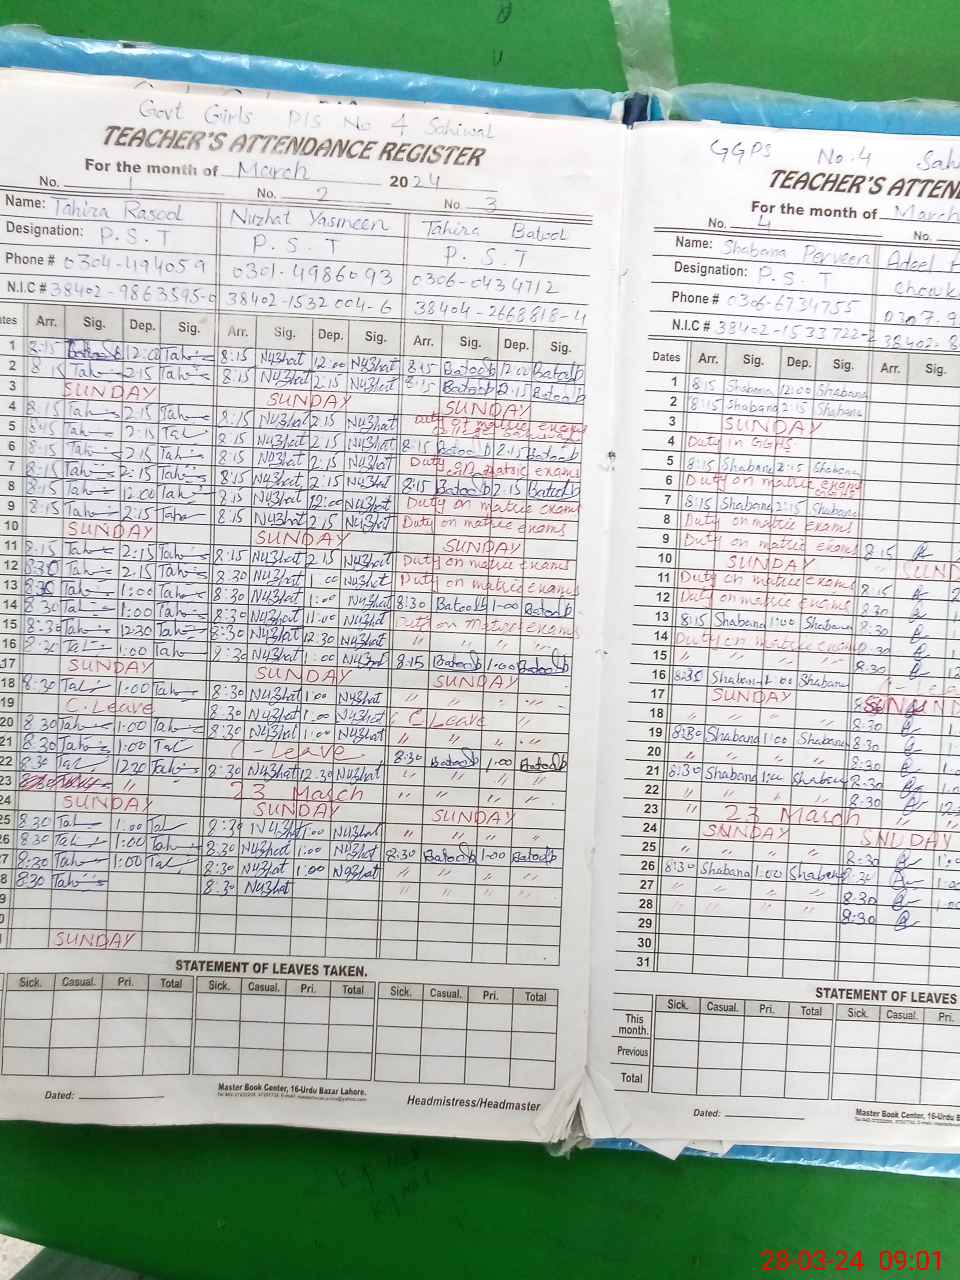 Govt Girls P/S No 4 Sahiwal
TEACHER'S ATTENDANCE REGISTER
For the month of March 2024
No. 1 No. 2 No 3
Name: Tahira Rasool Nuzhat Yasmeen Tahira Batool
Designation: P.S.T P.S.T P.S.T
Phone # 0304-494059 0301-4986093 0306-0434712
N.I.C # 38402-9863595-0 38402-1532004-6 38404-2668818-4
Arr. Sig. Dep. Sig. Arr. Sig. Dep. Sig. Arr. Sig. Dep. Sig.
1 8:15 Batool 12:00 Tah 8:15 Nu3hat 12:00 Nu3hat 8:15 Batool 12:00 Batool
2 8:15 Tah 2:15 Tah 8:15 Nu3hat 2:15 Nu3hat 8:15 Batool 2:15 Batool
3 SUNDAY SUNDAY SUNDAY
4 8:15 Tah 2:15 Tah 8:15 Nu3hat 2:15 Nu3hat Duty of matric exams
5 8:15 Tah 2:15 Tal 8:15 Nu3hat 2:15 Nu3hat 8:15 Batool 2:15 Batool
6 8:15 Tah 2:15 Tah 8:15 Nu3hat 2:15 Nu3hat Duty on matric exams
7 8:15 Tah 2:15 Tah 8:15 Nu3hat 2:15 Nu3hat 8:15 Batool 2:15 Batool
8 8:15 Tah 12:00 Tah 8:15 Nu3hat 12:00 Nu3hat Duty on matric exams
9 8:15 Tah 2:15 Tah 8:15 Nu3hat 2:15 Nu3hat Duty on matric exams
10 SUNDAY SUNDAY SUNDAY
11 8:15 Tah 2:15 Tah 8:15 Nu3hat 2:15 Nu3hat Duty on matric exams
12 8:30 Tah 2:15 Tah 8:30 Nu3hat 1:00 Nu3hat Duty on matric exams
13 8:30 Tah 1:00 Tah 8:30 Nu3hat 1:00 Nu3hat 8:30 Batool 1-00 Batool
14 8:30 Tah 1:00 Tah 8:30 Nu3hat 1:00 Nu3hat Duty on matric exams
15 8:30 Tah 12:30 Tah 8:30 Nu3hat 12:30 Nu3hat " " " "
16 8:30 Tal 1:00 Tah 8:30 Nu3hat 1:00 Nu3hat 8:15 Batool 1-00 Batool
17 SUNDAY SUNDAY SUNDAY
18 8:30 Tal 1:00 Tah 8:30 Nu3hat 1:00 Nu3hat " " " "
19 C.Leave 8:30 Nu3hat 1:00 Nu3hat C Leave
20 8:30 Tah 1:00 Tah 8:30 Nu3hat 1:00 Nu3hat " " " "
21 8:30 Tah 1:00 Tal C-Leave 8:30 Batool 1:00 Batool
22 8:30 Tal 12:30 Tah 8:30 Nu3hat 12:30 Nu3hat " " " "
23 23 March " " " "
24 SUNDAY SUNDAY SUNDAY
25 8:30 Tal 1:00 Tal 8:30 Nu3hat 1:00 Nu3hat " " " "
26 8:30 Tah 1:00 Tah 8:30 Nu3hat 1:00 Nu3hat 8:30 Batool 1-00 Batool
27 8:30 Tah 1:00 Tal 8:30 Nu3hat 1:00 Nu3hat " " " "
8 8:30 Tah 8:30 Nu3hat " " " "
9
0
SUNDAY
STATEMENT OF LEAVES TAKEN.
Sick. Casual. Pri. Total Sick. Casual. Pri. Total Sick. Casual. Pri. Total
Dated: Master Book Center, 16-Urdu Bazar Lahore. Headmistress/Headmaster
GGPS No.4 Sah
TEACHER'S ATTEN
For the month of March
No. 4 No.
Name: Shabana Perveen Adeel
Designation: P.S.T chowk
Phone # 0306-6734755 0307.9
N.I.C # 38402-1533722-2 38402-8
Dates Arr. Sig. Dep. Sig. Arr. Sig.
1 8:15 Shabana 12:00 Shabana
2 8:15 Shabana 2:15 Shabana
3 SUNDAY
4 Duty in GGHS
5 8:15 Shabana 2:15 Shabana
6 Duty on matric exams
7 8:15 Shabana 2:15 Shabana
8 Duty on matric exams
9 Duty on matric exams 8:15
10 SUNDAY SUND
11 Duty on matric exams 8:15 2
12 Duty on matric exams 8:30
13 8:15 Shabana 1:00 Shabana 8:30
14 Duty on matric exams 8:30
15 " " " " 8:30 12
16 8:30 Shabana 1:00 Shabana
17 SUNDAY SUND
18 " " " " 8:30
19 8:30 Shabana 1:00 Shabana 8:30
20 " " " " 8:30
21 8:30 Shabana 1:00 Shabana 8:30
22 " " " " 8:30 12
23 23 March
24 SUNDAY SNUDAY
25 " " " " 8:30 1:0
26 8:30 Shabana 1:00 Shabana 8:30
27 " " " " 8:30 1:00
28 " " " " 8:30
29
30
31
STATEMENT OF LEAVES
Sick. Casual. Pri. Total Sick. Casual. Pri.
This month.
Previous
Total
Dated: Master Book Center, 16-Urdu B
28-03-24 09:01